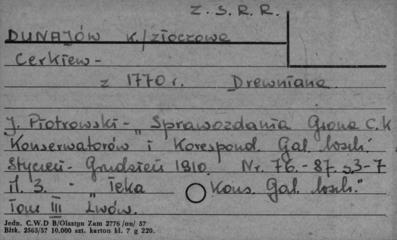 Z.S.R.R.
DUNAJÓW k/złoczowa
Cerkiew -
z 1770 r. Drewniana
J. Piotrowski - „Sprawozdania Grona C.K
Konserwatorów i Korespond. Gal. wsch."
Styczeń - Grudzień 1910. Nr. 76.-87. s 3-7
il. 3. - Teka Kons. Gal. wsch."
Tom III Lwów.
Jedn. C.W.D B/Olsztyn Zam 2776/on/57
Błsk. 2563/57 10.000 szt. karton kl. 7 g 220.